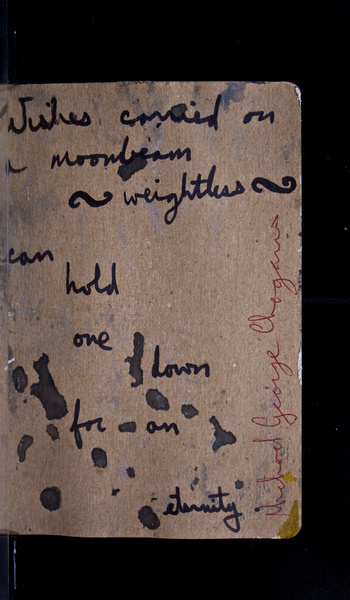 Wishes carried on
a moonbeam
~ weightless ~
can
hold
one down
for an
eternity.
Michael George Chogais